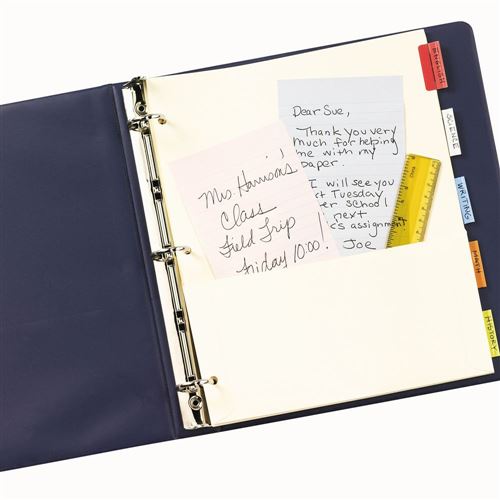 Dear Sue,
Thank you very
much for helping
me with my
paper.
I will see you
next Tuesday
after school
next
assignment
Joe
Mrs. Harrison's
Class
Field Trip!
Friday 10:00!
ENGLISH
SCIENCE
WRITING
MATH
HISTORY